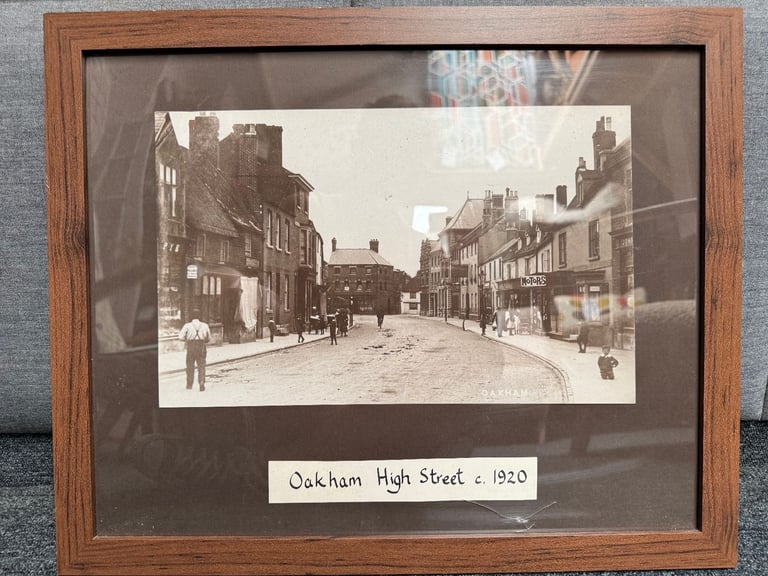 MOTORS
OAKHAM
Oakham High Street c. 1920